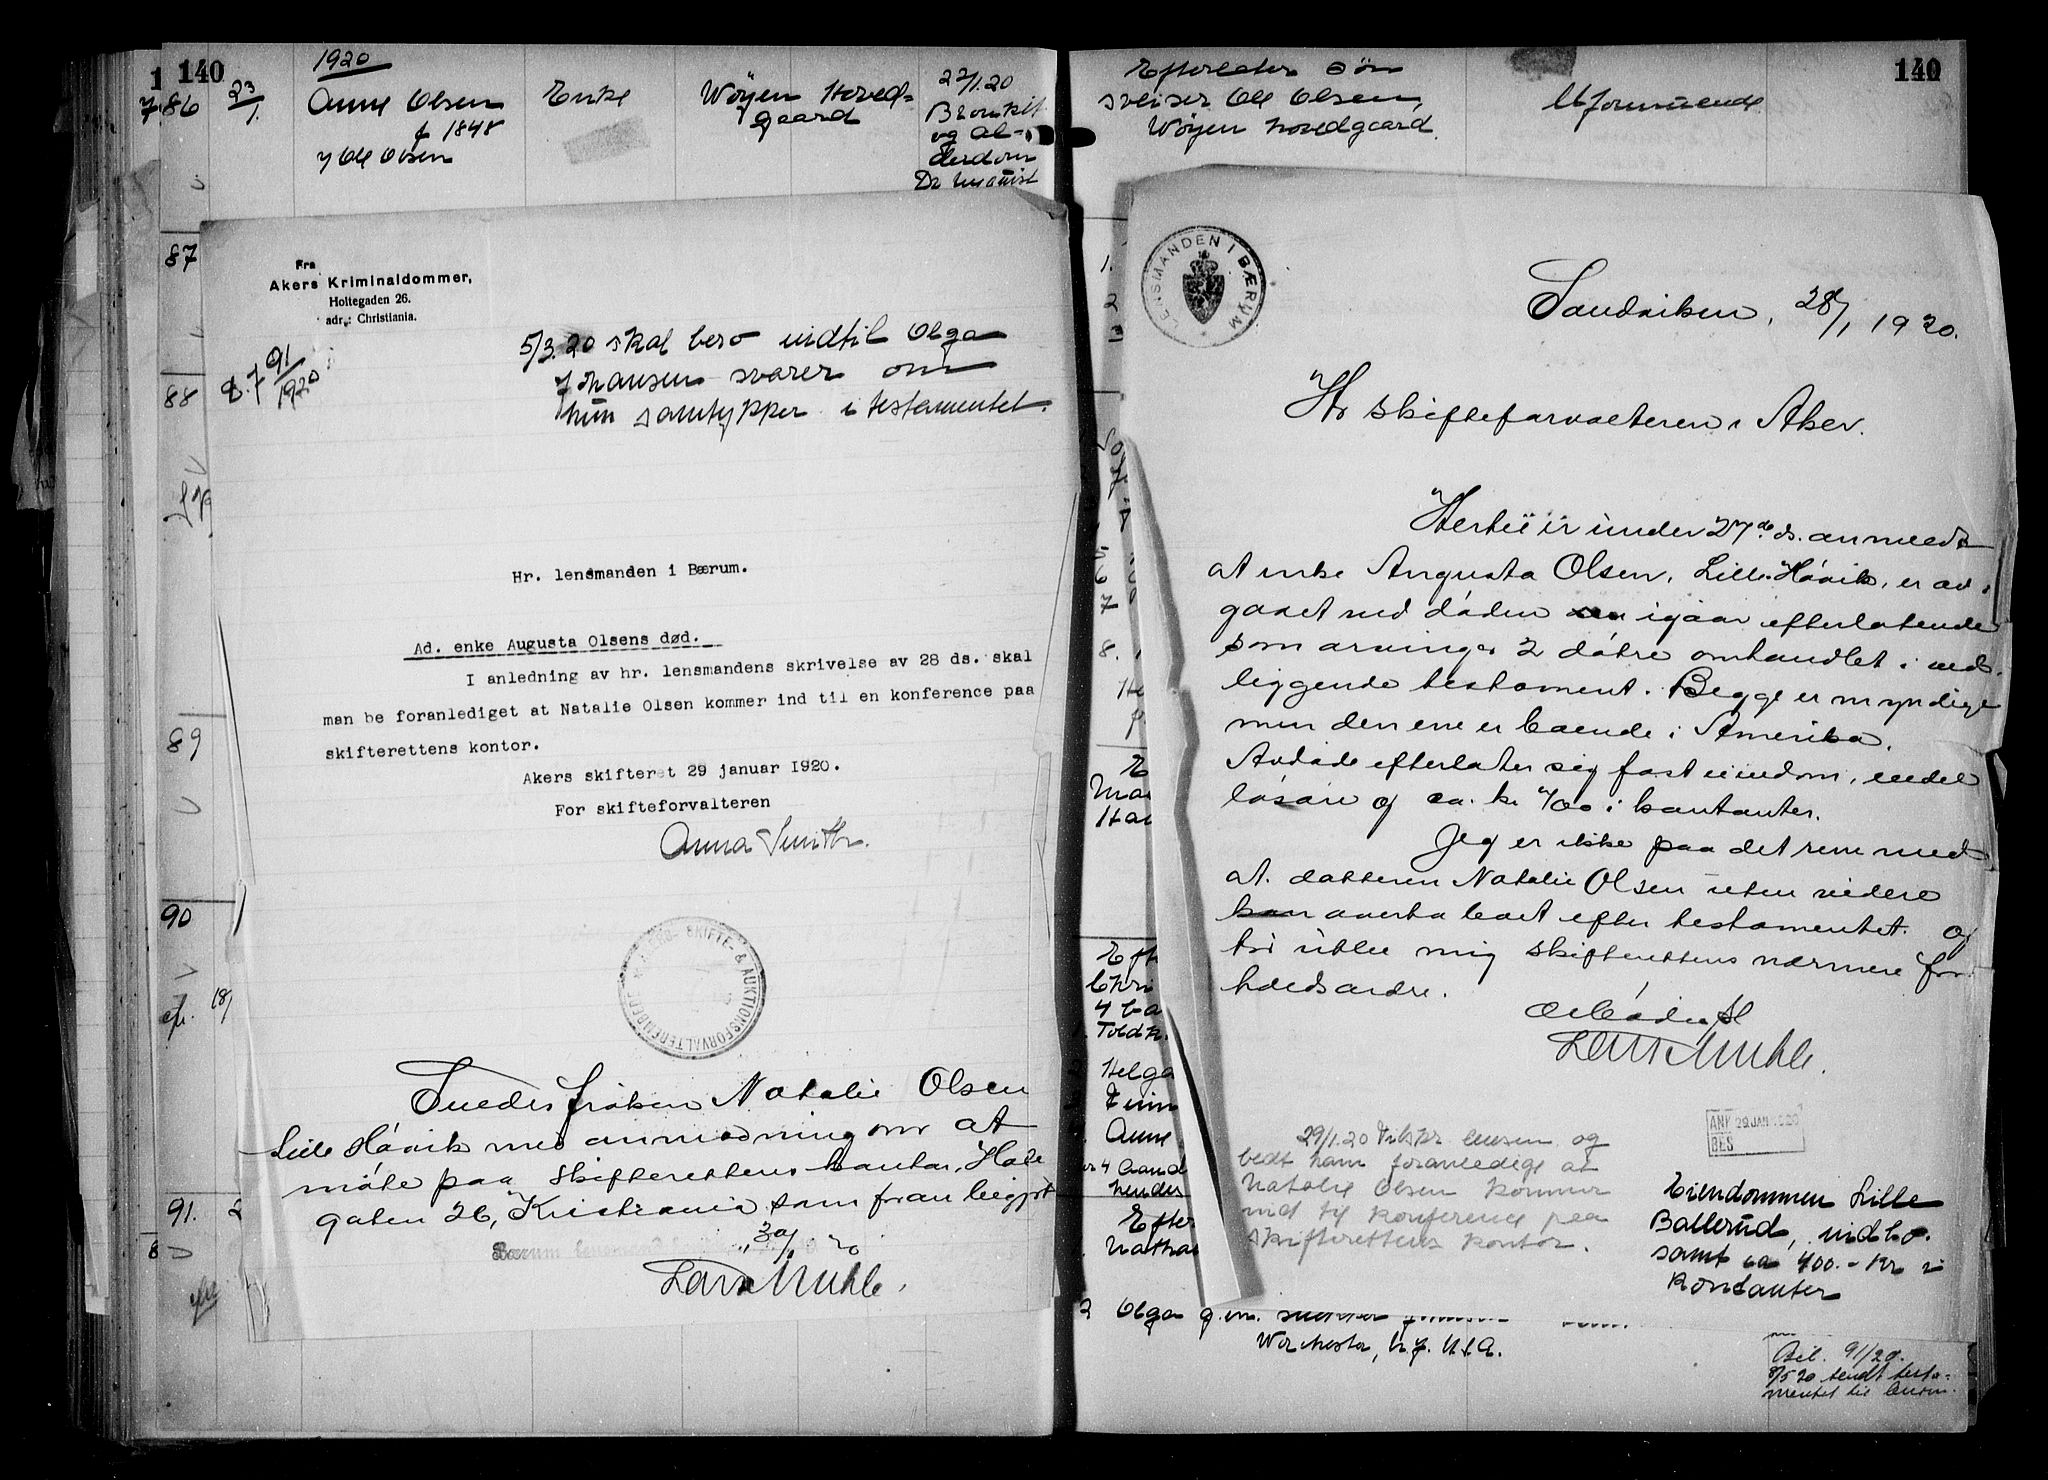 140
1920
7.86
23/1.
Anne Olsen
f 1848
Ole Olsen
Enke
Wøyen Hoved-
gaard
22/1.20
Bronkit
og al-
derdom
87
88
89
90
91.
Fra
Akers Kriminaldommer,
Holtegaden 26.
adr.: Christiania.
91/1920
5/3.20 skal bero indtil Olga
Johansen svarer om
hun samtykker i testamentet.
Hr. lensmanden i Bærum.
Ad. enke Augusta Olsens død.
I anledning av hr. lensmandens skrivelse av 28 ds. skal
man be foranlediget at Natalie Olsen kommer ind til en konference paa
skifterettens kontor.
Akers skifteret 29 januar 1920.
For skifteforvalteren
Anna Smith.
AKERS SKIFTE- & AUKTIONSFORVALTEREMBEDE
Sendes frøken Natalie Olsen
Lille Høvik med anmodning om at
møte paa skifterettens kontor, Holte
gaten 26, Kristiania som foranlediget
Bærum lensmand
30/1 20
Lars Muhle.
140
Efterlater søn
sveiser Ole Olsen,
Wøyen hovedgaard.
Uformuende
LENSMANDEN I BÆRUM
Sandviken, 28/1 1920.
Hr skifteforvalteren i Aker.
Hertil er under 27de ds. anmeldt
at enke Augusta Olsen, Lille Høvik, er av-
gaaet ved døden igaar efterlatende
som arvinger 2 døtre omhandlet i ved-
liggende testament. Begge er myndige
men den ene er boende i Amerika.
Avdøde efterlater sig fast eiendom, endel
løsøre og ca. kr 400 i kontanter.
Jeg er ikke paa det rene med
at datteren Natalie Olsen uten videre
kan overta boet efter testamentet og
tør utbe mig skifterettens nærmere for-
holdsordre.
Ærbødigst
Lars Muhle.
ANK 29 JAN 1920
BES
29/1.20 Tilskr lensm og
bedt ham foranledige at
Natalie Olsen kommer
ind til konference paa
skifterettens kontor.
Eiendommen Lille
Ballerud, indbo.
samt ca 400.- Kr i
kontanter
2 Olga g.m.
Worchester, N.J. U.S.A.
Bil. 91/20.
8/5 20 sendt testa-
mentet til lensm.